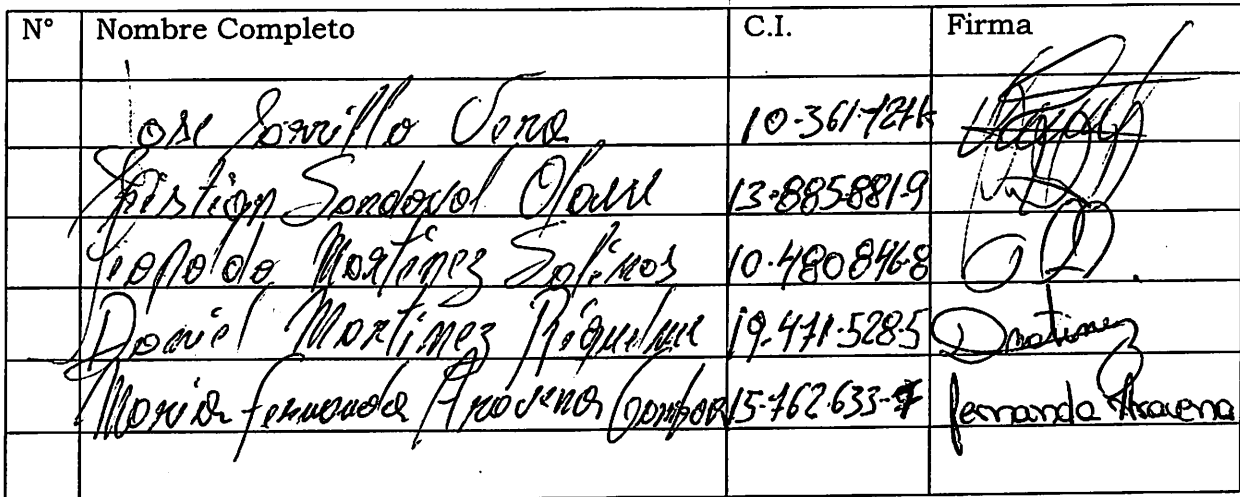 N° Nombre Completo C.I. Firma
Jose Vera 10-361-727-k
Cristian Sandoval Olave 13-885-881-9
Leopoldo Martinez Salinas 10-480846-8
Daniel Martinez Riquelme 19-471-528-5 Dmatinez
Maria Fernanda Aravena 15-762-633-7 Fernanda Aravena